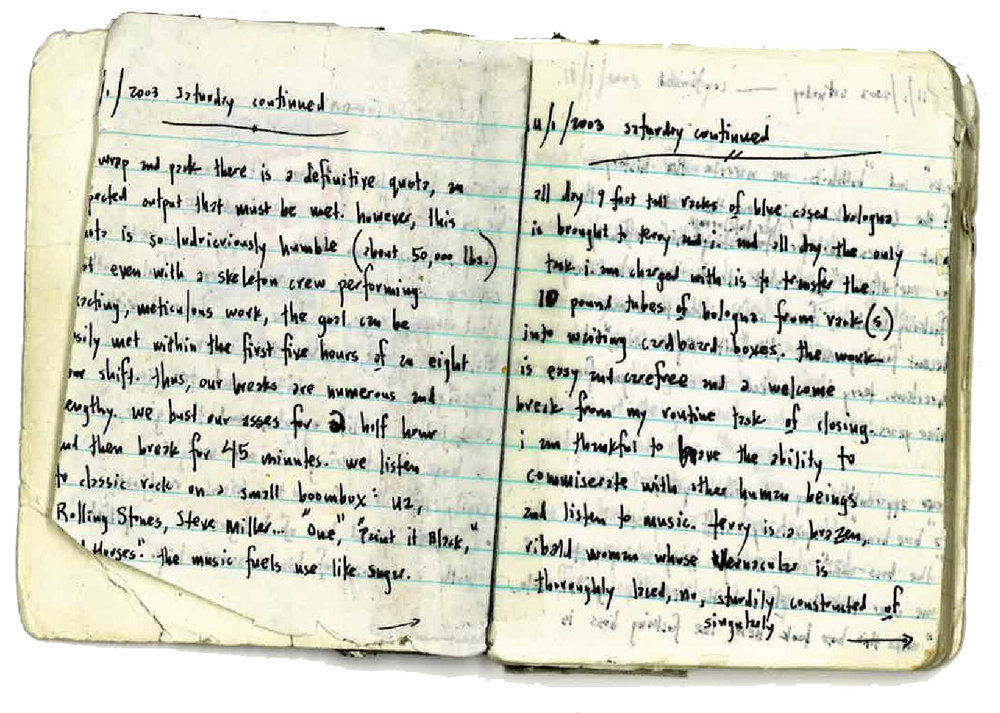 1./2003 saturday continued
wrap and pack there is a definitive quota, an
pected output that must be met. however, this
uota is so ludricriously humble (about 50,000 lbs.)
at even with a skeleton crew performing
xacting, meticulous work, the goal can be
asily met within the first five hours of an eight
our shift. thus, our breaks are numerous and
engthy. we bust our asses for a half hour
and then break for 45 minutes. we listen
to classic rock on a small boombox: u2,
Rolling Stones, Steve Miller... "One", "Paint it Black,"
d Horses". the music fuels use like sugar.
11/1/2003 saturday continued
all day 9 foot tall racks of blue cased bologna
is brought to terry and i. and all day the only
task i am charged with is to transfer the
10 pound tubes of bologna from rack(s)
into waiting cardboard boxes. the work
is easy and carefree and a welcome
break from my routine task of closing.
i am thankful to have the ability to
commiserate with other human beings
and listen to music. terry is a brazen,
ribald woman whose vernacular is
thoroughly laced, no, sturdily constructed of
singularly